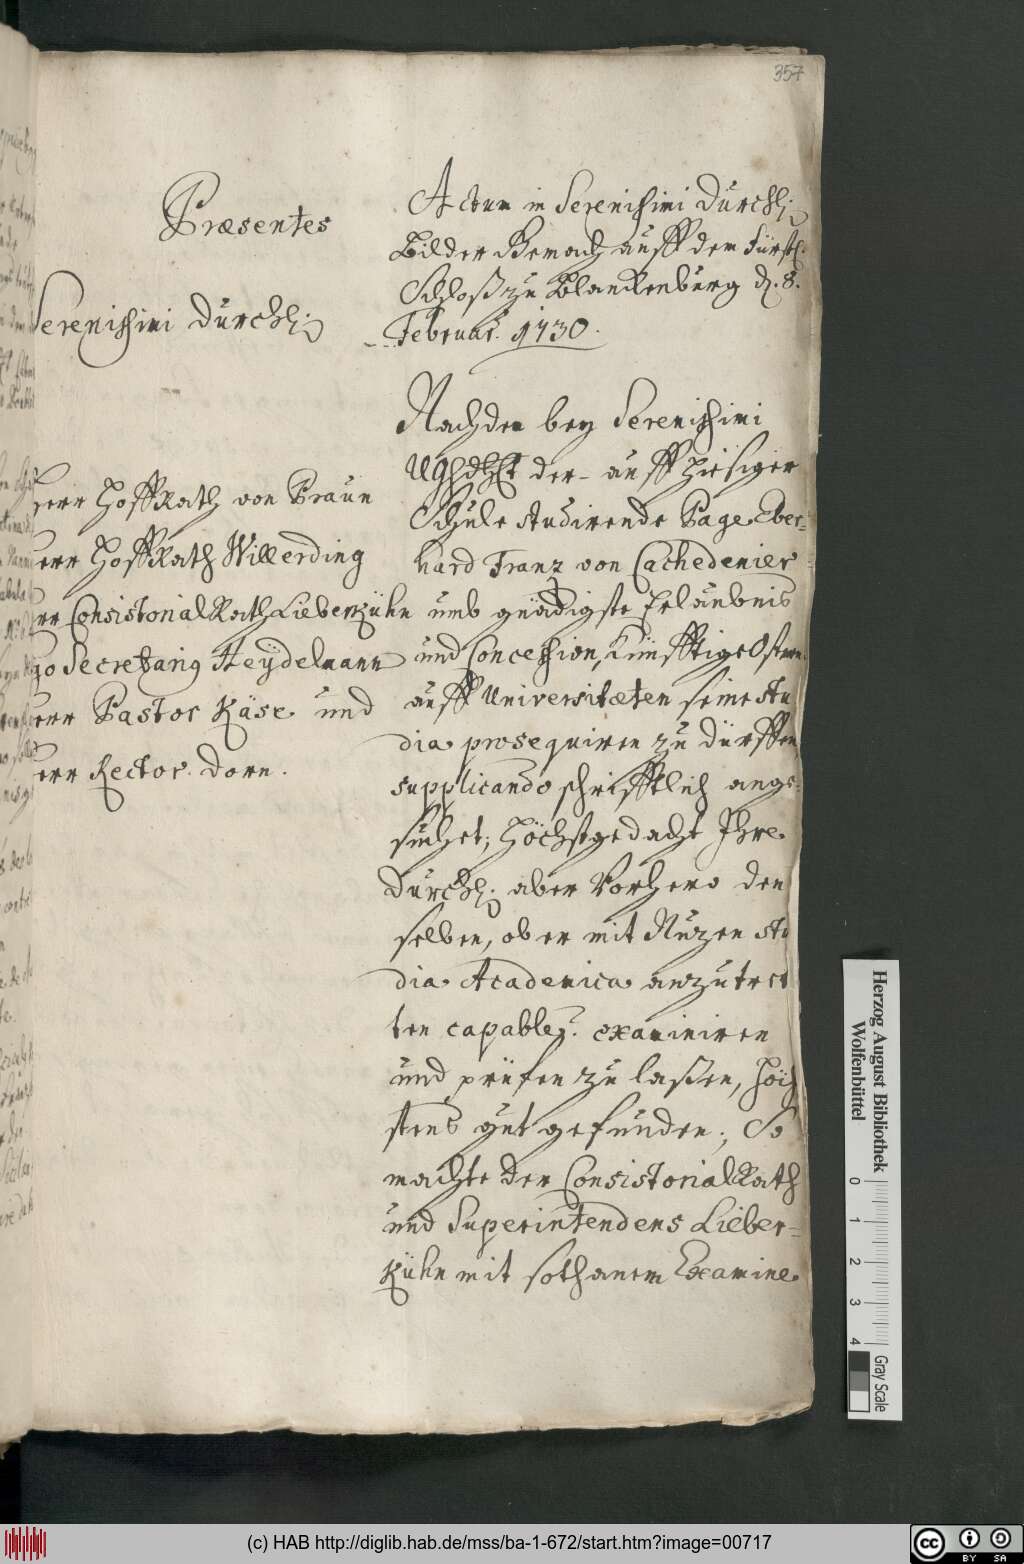 357
Præsentes
Serenissimi Durchl:
Herr Hoff Rath von Praun
Herr Hoff Rath Willerding
Herr Consistorial Rath Lieberkühn
Ego Secretarius Heydelmann
Herr Pastor Käse und
Herr Rector Dorn.
Actum in Serenissimi Durchl:
Bilder Gemach auff dem Fürstl:
Schloß zu Blanckenburg d. 8.
Februar. 1730.
Nachdem bey Serenissimi
der auff hiesiger
Schule studirende Page Eber=
hard Franz von Cachedenier
umb gnädigste Erlaubnis
und Concession, künfftige Ostern
auff Universitæten seine Stu
dia prosequiren zu dürffen
supplicando schrifftlich ange=
suchet; Höchstgedacht Ihre
Durchl: aber Vorhero den
selben, ob er mit Nuzen Stu
dia Academica anzutret
ten capable? examiniren
und prüfen zu laßen, Höch
stens gut gefunden; So
machte der Consistorial Rath
und Superintendens Lieber=
kühn mit sothanem Examine
Herzog August Bibliothek
Wolfenbüttel
0 1 2 3 4
Gray Scale
(c) HAB http://diglib.hab.de/mss/ba-1-672/start.htm?image=00717
cc BY SA